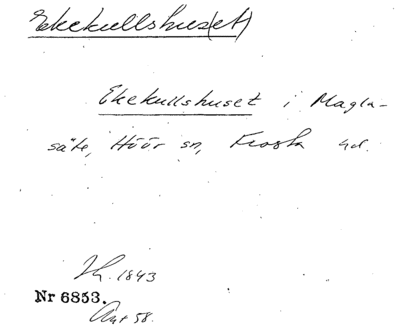 Ekekullshus(et)
Ekekullshuset i Magla-
säte, Höör sn, Frosta hd.
Jh. 1843
Nr 6853.
Ant 58.